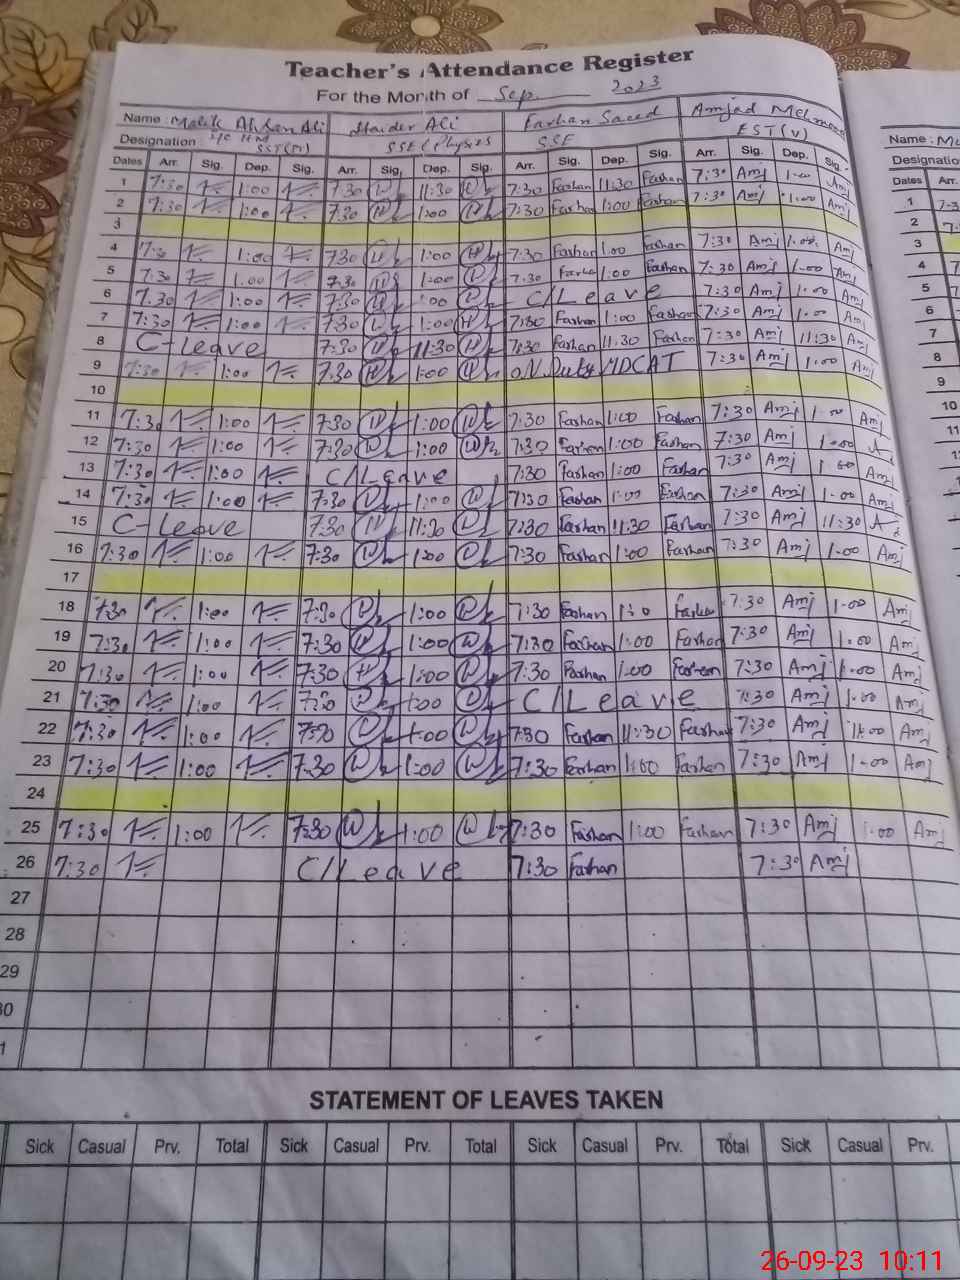 Teacher's Attendance Register
For the Month of Sep. 2023
Name : Malik Ahsan Ali Haider Ali Farhan Saeed Amjad Mehmood Name : Mu
Designation : I/C HM SST(M) SSE (Physics SSE EST(V) Designatio
Dates Arr. Sig. Dep. Sig. Arr. Sig. Dep. Sig. Arr. Sig. Dep. Sig. Arr. Sig. Dep. Sig. Dates Arr.
1 7:30 1:00 7:30 11:30 7:30 Farhan 11:30 Farhan 7:30 Amj 1.00 Amj 1
2 7:30 1:00 7:30 1:00 7:30 Farhan 1:00 Farhan 7:30 Amj 1.00 Amj 2
3 3
4 7:30 1:00 7:30 1:00 7:30 Farhan 1:00 Farhan 7:30 Amj 1.00 Amj 4
5 7:30 1:00 7:30 1:00 7:30 Farhan 1:00 Farhan 7:30 Amj 1.00 Amj 5
6 7:30 1:00 7:30 1:00 C/Leave 7:30 Amj 1.00 Amj 6
7 7:30 1:00 7:30 1:00 7:30 Farhan 1:00 Farhan 7:30 Amj 1.00 Amj 7
8 C-Leave 7:30 11:30 7:30 Farhan 11:30 Farhan 7:30 Amj 11:30 Amj 8
9 7:30 1:00 7:30 1:00 oN Duty MDCAT 7:30 Amj 1:00 Amj 9
10 10
11 7:30 1:00 7:30 1:00 7:30 Farhan 1:00 Farhan 7:30 Amj 1.00 Amj
12 7:30 1:00 7:30 1:00 7:30 Farhan 1:00 Farhan 7:30 Amj 1.00
13 7:30 1:00 C/Leave 7:30 Farhan 1:00 Farhan 7:30 Amj 1.00 Amj
14 7:30 1:00 7:30 1:00 7:30 Farhan 1:00 Farhan 7:30 Amj 1.00 Amj
15 C-Leave 7:30 11:30 7:30 Farhan 11:30 Farhan 7:30 Amj 11:30
16 7:30 1:00 7:30 1:00 7:30 Farhan 1:00 Farhan 7:30 Amj 1.00 Amj
17
18 7:30 1:00 7:30 1:00 7:30 Farhan Farhan 7:30 Amj 1.00 Amj
19 7:30 1:00 7:30 1:00 7:30 Farhan 1:00 Farhan 7:30 Amj 1.00 Amj
20 7:30 1:00 7:30 1:00 7:30 Farhan 1:00 Farhan 7:30 Amj 1.00 Amj
21 7:30 1:00 7:30 1:00 C/Leave 7:30 Amj 1.00 Amj
22 7:30 1:00 7:30 1:00 7:30 Farhan 11:30 Farhan 7:30 Amj Amj
23 7:30 1:00 7:30 1:00 7:30 Farhan 1:00 Farhan 7:30 Amj 1.00 Amj
24
25 7:30 1:00 7:30 1:00 7:30 Farhan 1:00 Farhan 7:30 Amj 1:00 Amj
26 7:30 C/Leave 7:30 Farhan 7:30 Amj
27
28
29
30
1
STATEMENT OF LEAVES TAKEN
Sick Casual Prv. Total Sick Casual Prv. Total Sick Casual Prv. Total Sick Casual Prv.
26-09-23 10:11